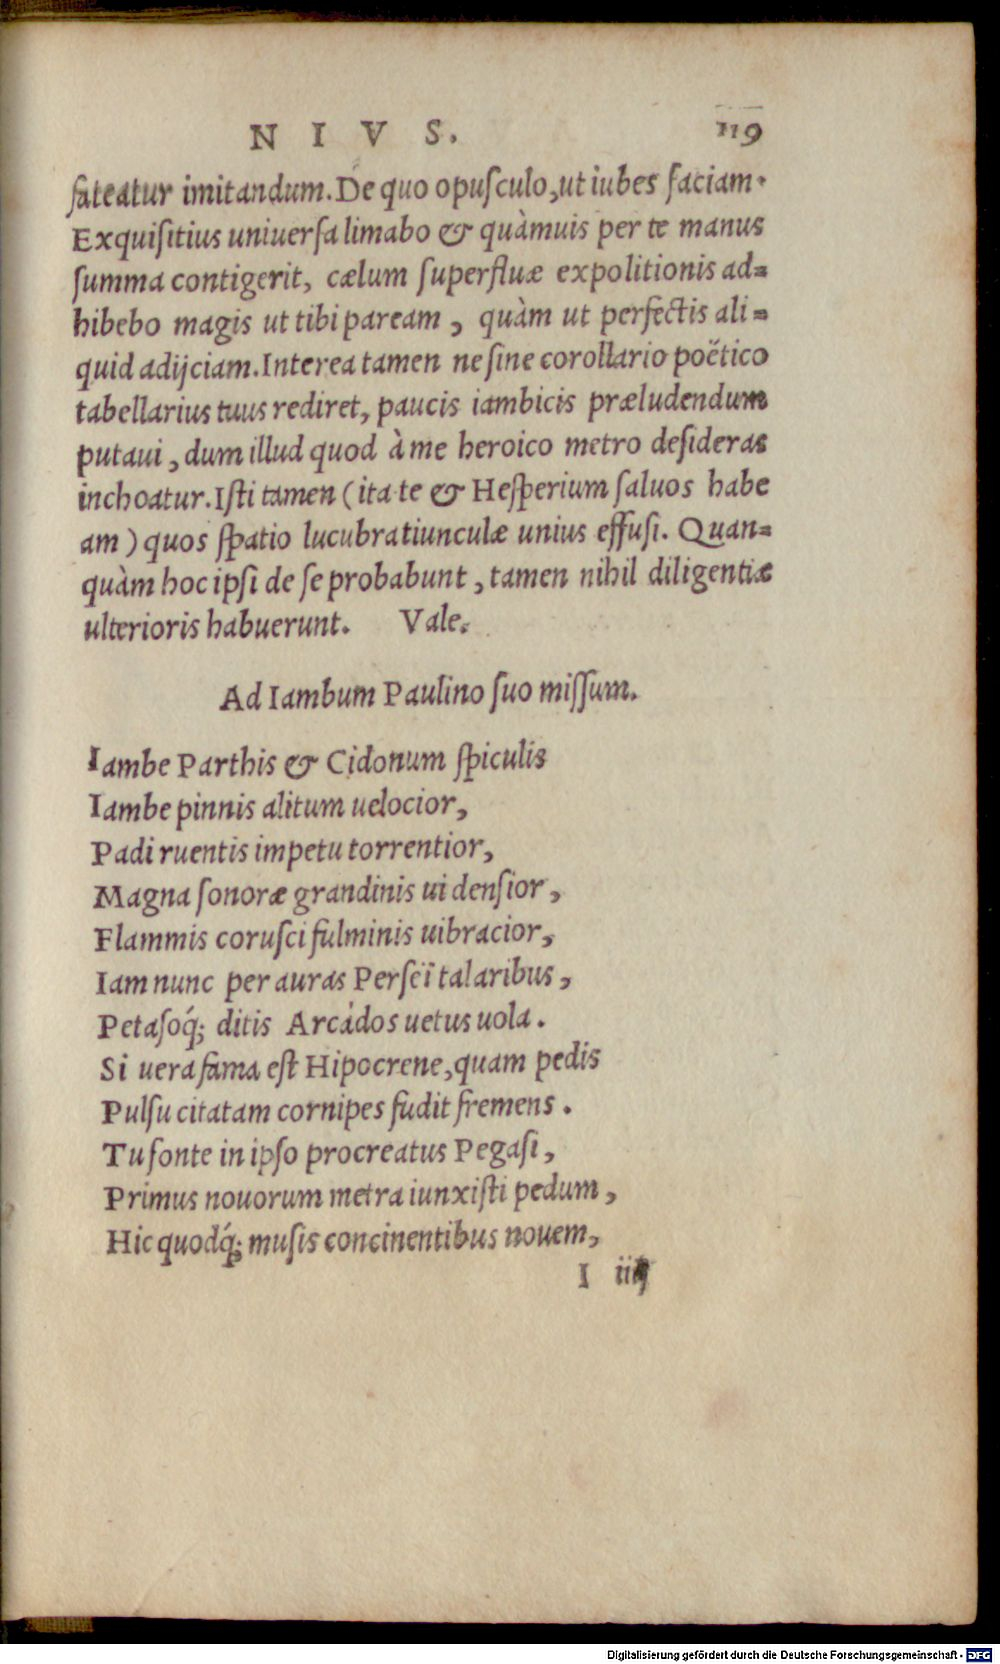 N I V S. 119
fateatur imitandum. De quo opusculo, ut iubes faciam.
Exquisitius uniuersa limabo & quàmuis per te manus
summa contigerit, cælum superfluæ expolitionis ad=
hibebo magis ut tibi paream, quàm ut perfectis ali=
quid adijciam. Interea tamen ne sine corollario poëtico
tabellarius tuus rediret, paucis iambicis præludendum
putaui, dum illud quod à me heroico metro desideras
inchoatur. Isti tamen (ita te & Hesperium saluos habe
am) quos spatio lucubratiunculæ unius effusi. Quan=
quàm hoc ipsi de se probabunt, tamen nihil diligentiæ
ulterioris habuerunt. Vale.
Ad Iambum Paulino suo missum.
Iambe Parthis & Cidonum spiculis
Iambe pinnis alitum uelocior,
Padi ruentis impetu torrentior,
Magna sonoræ grandinis ui densior,
Flammis corusci fulminis uibracior,
Iam nunc per auras Perseï talaribus,
Petasoq́; ditis Arcádos uetus uola.
Si uera fama est Hipocrene, quam pedis
Pulsu citatam cornipes fudit fremens.
Tu fonte in ipso procreatus Pegasi,
Primus nouorum metra iunxisti pedum,
Hic quodq́; musis concinentibus nouem,
I iiij
Digitalisierung gefördert durch die Deutsche Forschungsgemeinschaft - DFG